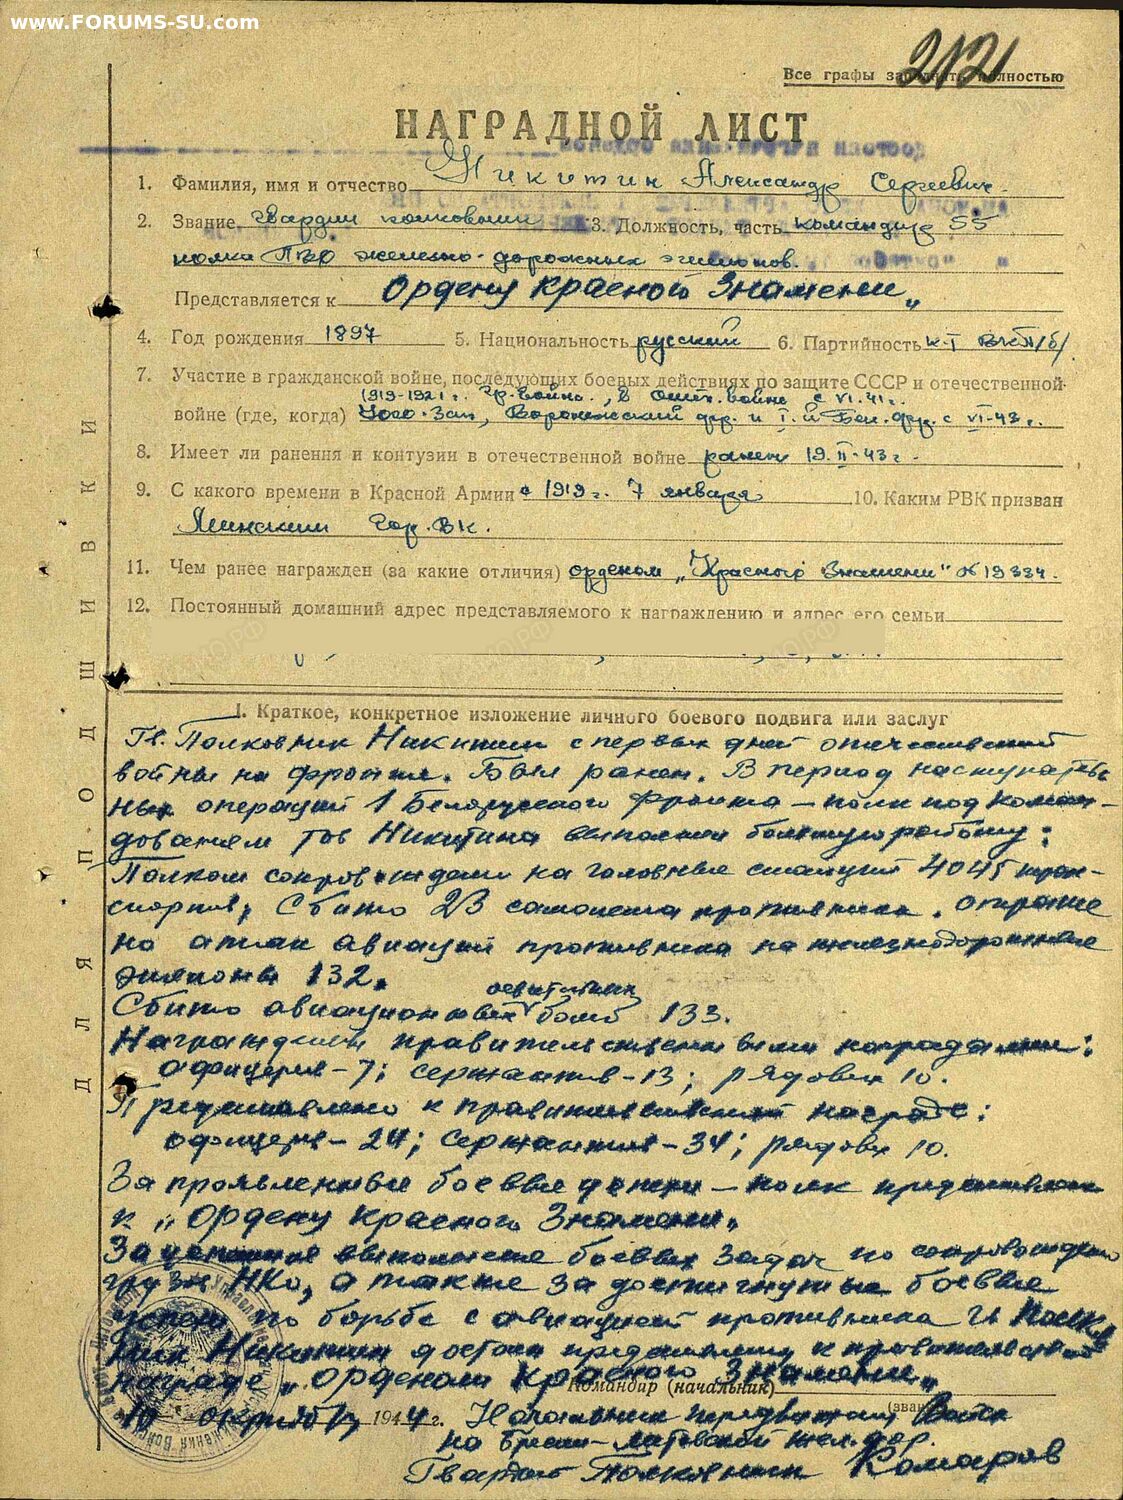 www.FORUMS-SU.com
2121
Все графы заполнять полностью
НАГРАДНОЙ ЛИСТ
1. Фамилия, имя и отчество Никитин Александр Сергеевич.
2. Звание Гвардии полковник 3. Должность, часть командир 55
полка ПВО железно-дорожных эшелонов.
Представляется к Ордену Красного Знамени"
4. Год рождения 1897 5. Национальность русский 6. Партийность к-т ВКП/б/
7. Участие в гражданской войне, последующих боевых действиях по защите СССР и отечественной
1919-1921 г. гр. война, в Отеч. войне с VI.41 г.
войне (где, когда) Юго-Зап, Воронежский фр. и 1-й Бел. фр. с VI-43 г.
8. Имеет ли ранения и контузии в отечественной войне ранен 19.II-43 г.
9. С какого времени в Красной Армии с 1919 г. 7 января 10. Каким РВК призван
Минским Гор. ВК.
11. Чем ранее награжден (за какие отличия) орденом „Красного Знамени" № 19334.
12. Постоянный домашний адрес представляемого к награждению и адрес его семьи
ДЛЯ ПОДШИВКИ
I. Краткое, конкретное изложение личного боевого подвига или заслуг
Гв. Полковник Никитин с первых дней отечественной
войны на фронте. Был ранен. В период наступатель
ных операций 1 Белорусского фронта – полк под коман-
дованием тов Никитина выполнил большую работу:
Полком сопровождено на головные станции 4045 тран-
спортов, Сбито 23 самолета противника. отраже
но атак авиации противника на железнодорожные
эшелоны 132.
осветительных
Сбито авиационных бомб 133.
Награждено правительственными наградами:
офицеров-7; сержантов-13; рядовых 10.
Представлено к правительственной награде:
офицеров-24; сержантов-34; рядовых 10.
За проявленные боевые – полк представлен
к „Ордену Красного Знамени"
За успешное выполнение боевых задач по сопровождению
грузов НКО, а также за достигнутые боевые
успехи по борьбе с авиацией противника Гв Полков
ник Никитин достоин представлению к правительственной
награде „орденом Красного Знамени"
Командир (начальник)
(звание)
10 октября 1944 г. Начальник передвижения Войск
на Брест-Литовской жел. дор.
Гвардии Полковник Комаров